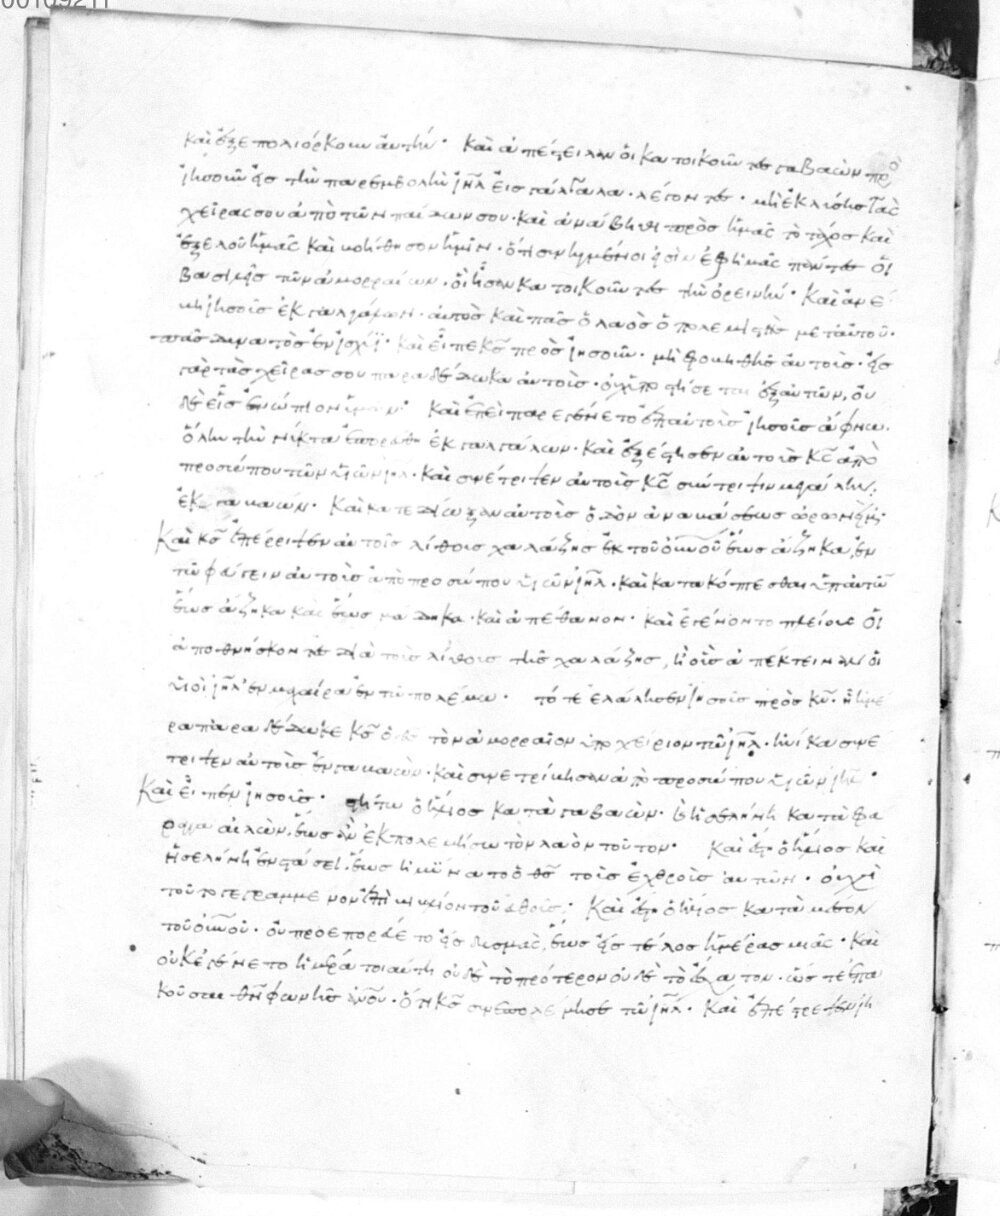 00109211
καὶ ἐξεπολιόρκουν αὐτήν. καὶ ἀπέστειλαν οἱ κατοικοῦντες γαβαὼν πρὸ
ἰησοῦν εἰς τὴν παρεμβολὴν ἰηλ εἰς γάλγαλα. λέγοντες. μὴ ἐκλύσης τὰς
χεῖρας σου ἀπὸ τῶν παίδων σου. καὶ ἀνάβηθι πρὸς ἡμᾶς τὸ τάχος καὶ
ἐξελοῦ ἡμᾶς καὶ βοήθησον ἡμῖν. ὅτι συνηγμένοι εἰσὶν ἐφ ἡμᾶς πάντες οἱ
βασιλεῖς τῶν ἀμορραίων. οἱ κατοικοῦντες τὴν ὀρεινήν. καὶ ἀνέ
βη ἰησοῦς ἐκ γαλγάλων. αὐτὸς καὶ πᾶς ὁ λαὸς ὁ πολεμιστὴς μετ αὐτοῦ.
πᾶς δυνατὸς ἐν ἰσχύϊ. καὶ εἶπε κς πρὸς ἰησοῦν. μὴ φοβηθῆς αὐτοὺς. εἰς
γὰρ τὰς χεῖρας σου παραδέδωκα αὐτούς. οὐχ ὑποστήσεται ἐξ αὐτῶν, οὐ
δὲ εἷς ἐνώπιον ὑμῶν. καὶ ἐπιπαρεγένετο ἐπ αὐτοὺς ἰησοῦς ἄφνω.
ὅλην τὴν νύκτα ἐκ γαλγάλων. καὶ ἐξέστησεν αὐτοὺς κς ἀπὸ
προσώπου τῶν υἱῶν ἰηλ. καὶ συνέτριψεν αὐτοὺς κς σύντριψιν μεγάλην,
ἐν γαβαών. καὶ κατεδίωξαν αὐτοὺς ὁδὸν ἀναβάσεως
καὶ κς ἐπέρριψεν αὐτοῖς λίθους χαλάζης ἐκ τοῦ οὐνοῦ ἕως ἀζηκά, ἐν
τῶ φεύγειν αὐτοὺς ἀπὸ προσώπου υἱῶν ἰηλ. καὶ κατακόπτεσθαι ὑπ αὐτῶν
ἕως ἀζηκὰ καὶ ἕως μακηδά. καὶ ἀπέθανον. καὶ ἐγένοντο πλείους οἱ
ἀποθνήσκοντες διὰ τοὺς λίθους τῆς χαλάζης, ἢ οὓς ἀπέκτειναν οἱ
υἱοὶ ἰηλ ἐν μαχαίρα ἐν τῶ πολέμω. τότε ἐλάλησεν ἰησοῦς πρὸς κν. ἡμέ
ρα παραδέδωκε κς ὁ θς τὸν ἀμορραῖον ὑποχείριον τῶ ἰηλ. ἡνίκα συνέ
τριψεν αὐτοὺς ἐν γαβαών. καὶ συνετρίβησαν ἀπὸ προσώπου υἱῶν ἰηλ.
καὶ εἶπεν ἰησοῦς. στήτω ὁ ἥλιος κατὰ γαβαών. καὶ ἡ σελήνη κατὰ φά
ραγγα αἰλών, ἕως ἂν ἐκπολεμήσω τὸν λαὸν τοῦτον. καὶ ἔστη ὁ ἥλιος καὶ
ἡ σελήνη ἐν στάσει, ἕως ἠμύνατο ὁ θς τοὺς ἐχθροὺς αὐτῶν. οὐχὶ
τοῦτο γεγραμμένον ἐπὶ βιβλίον τοῦ εὐθοῦς, καὶ ἔστη ὁ ἥλιος κατὰ μέσον
τοῦ οὐνοῦ. οὐ προεπορεύετο εἰς δυσμὰς, ἕως εἰς τέλος ἡμέρας μιᾶς. καὶ
οὐκ ἐγένετο ἡμέρα τοιαύτη οὐδὲ τὸ πρότερον οὐδὲ τὸ ἔσχατον. ὥστε ἐπα
κοῦσαι θν φωνῆς ἀνου. ὅτι κς συνεπολέμησε τῶ ἰηλ. καὶ ἐπέστρεψεν ἰη